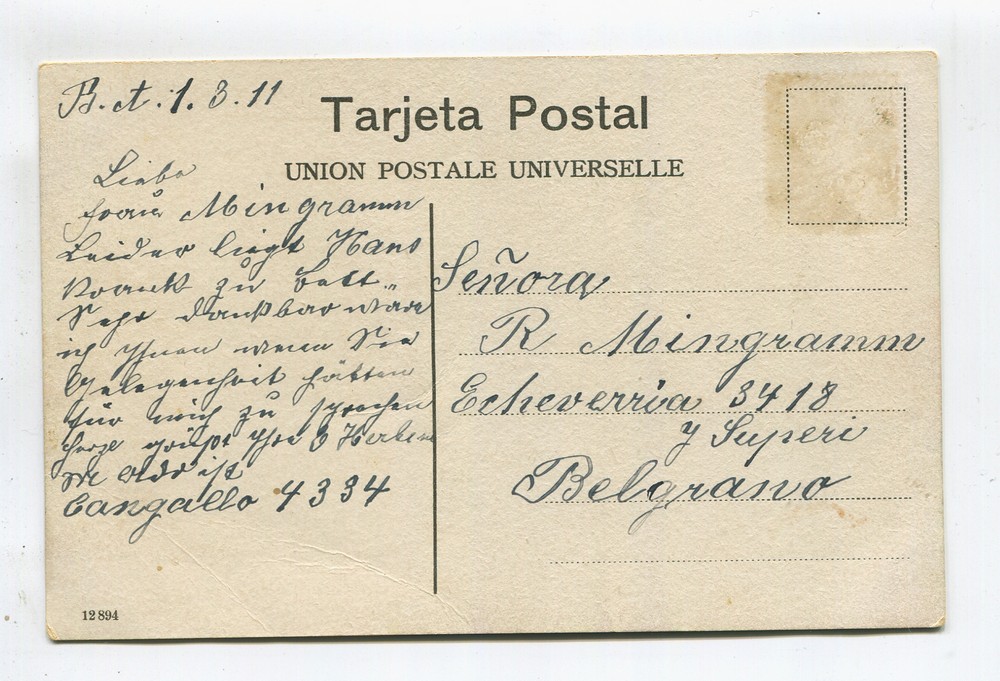 B. A. 1. 3. 11
Tarjeta Postal
UNION POSTALE UNIVERSELLE
Liebe
Frau Mingramm
Leider liegt Hans
krank zu Bett.
Sehr dankbar wäre
ich Ihnen wenn Sie
Gelegenheit hätten
für mich zu sprechen
Herzl grüßt Ihre
Adr ist
Cangallo 4334
12894
Señora
R Mingramm
Echeverria 3418
y Superi
Belgrano